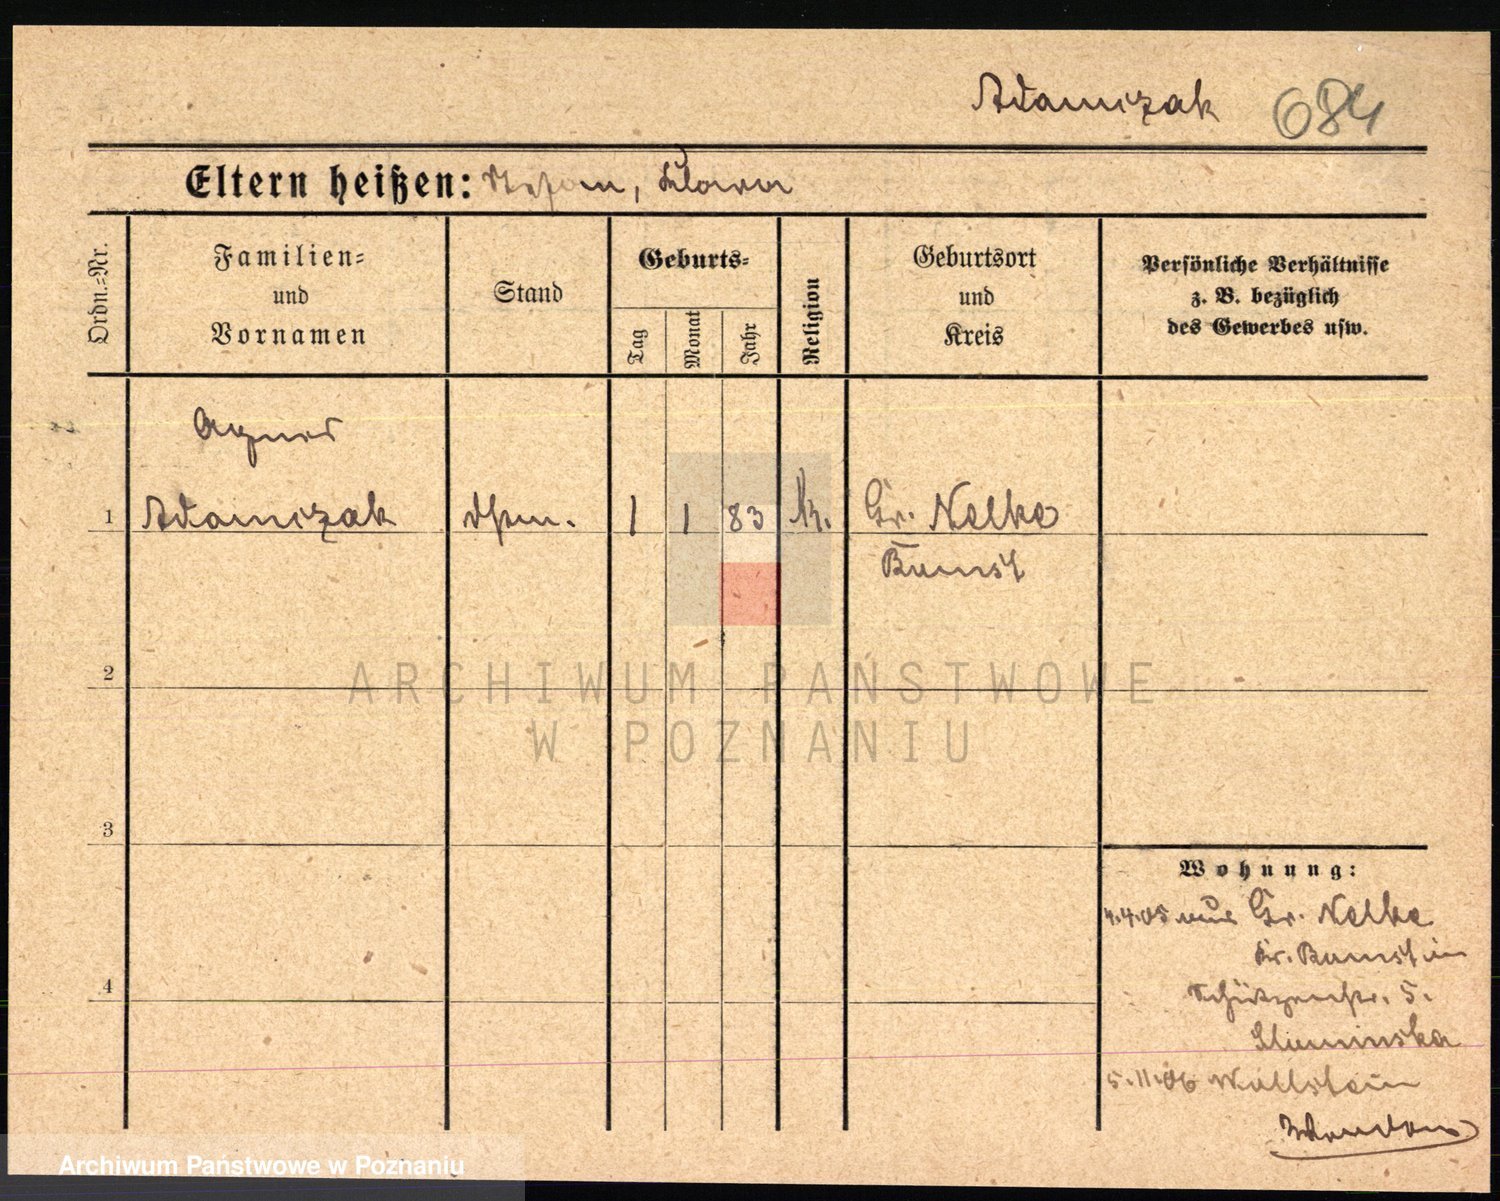 Adamczak 684
Eltern heißen: Stefan, Klara
Ordn.-Nr.
Familien-
und
Vornamen
Stand
Geburts-
Tag
Monat
Jahr
Religion
Geburtsort
und
Kreis
Persönliche Verhältnisse
z. B. bezüglich
des Gewerbes usw.
Agnes
1 Adamczak 1 1 83 K. Gr. Nelke
Bomst
2
3
4
Wohnung:
4.4.05 aus Gr. Nelke
Kr. Bomst in
Schützenstr. 5.
Sluminska
5.11.06 Wollstein
ARCHIWUM PAŃSTWOWE
W POZNANIU
Archiwum Państwowe w Poznaniu